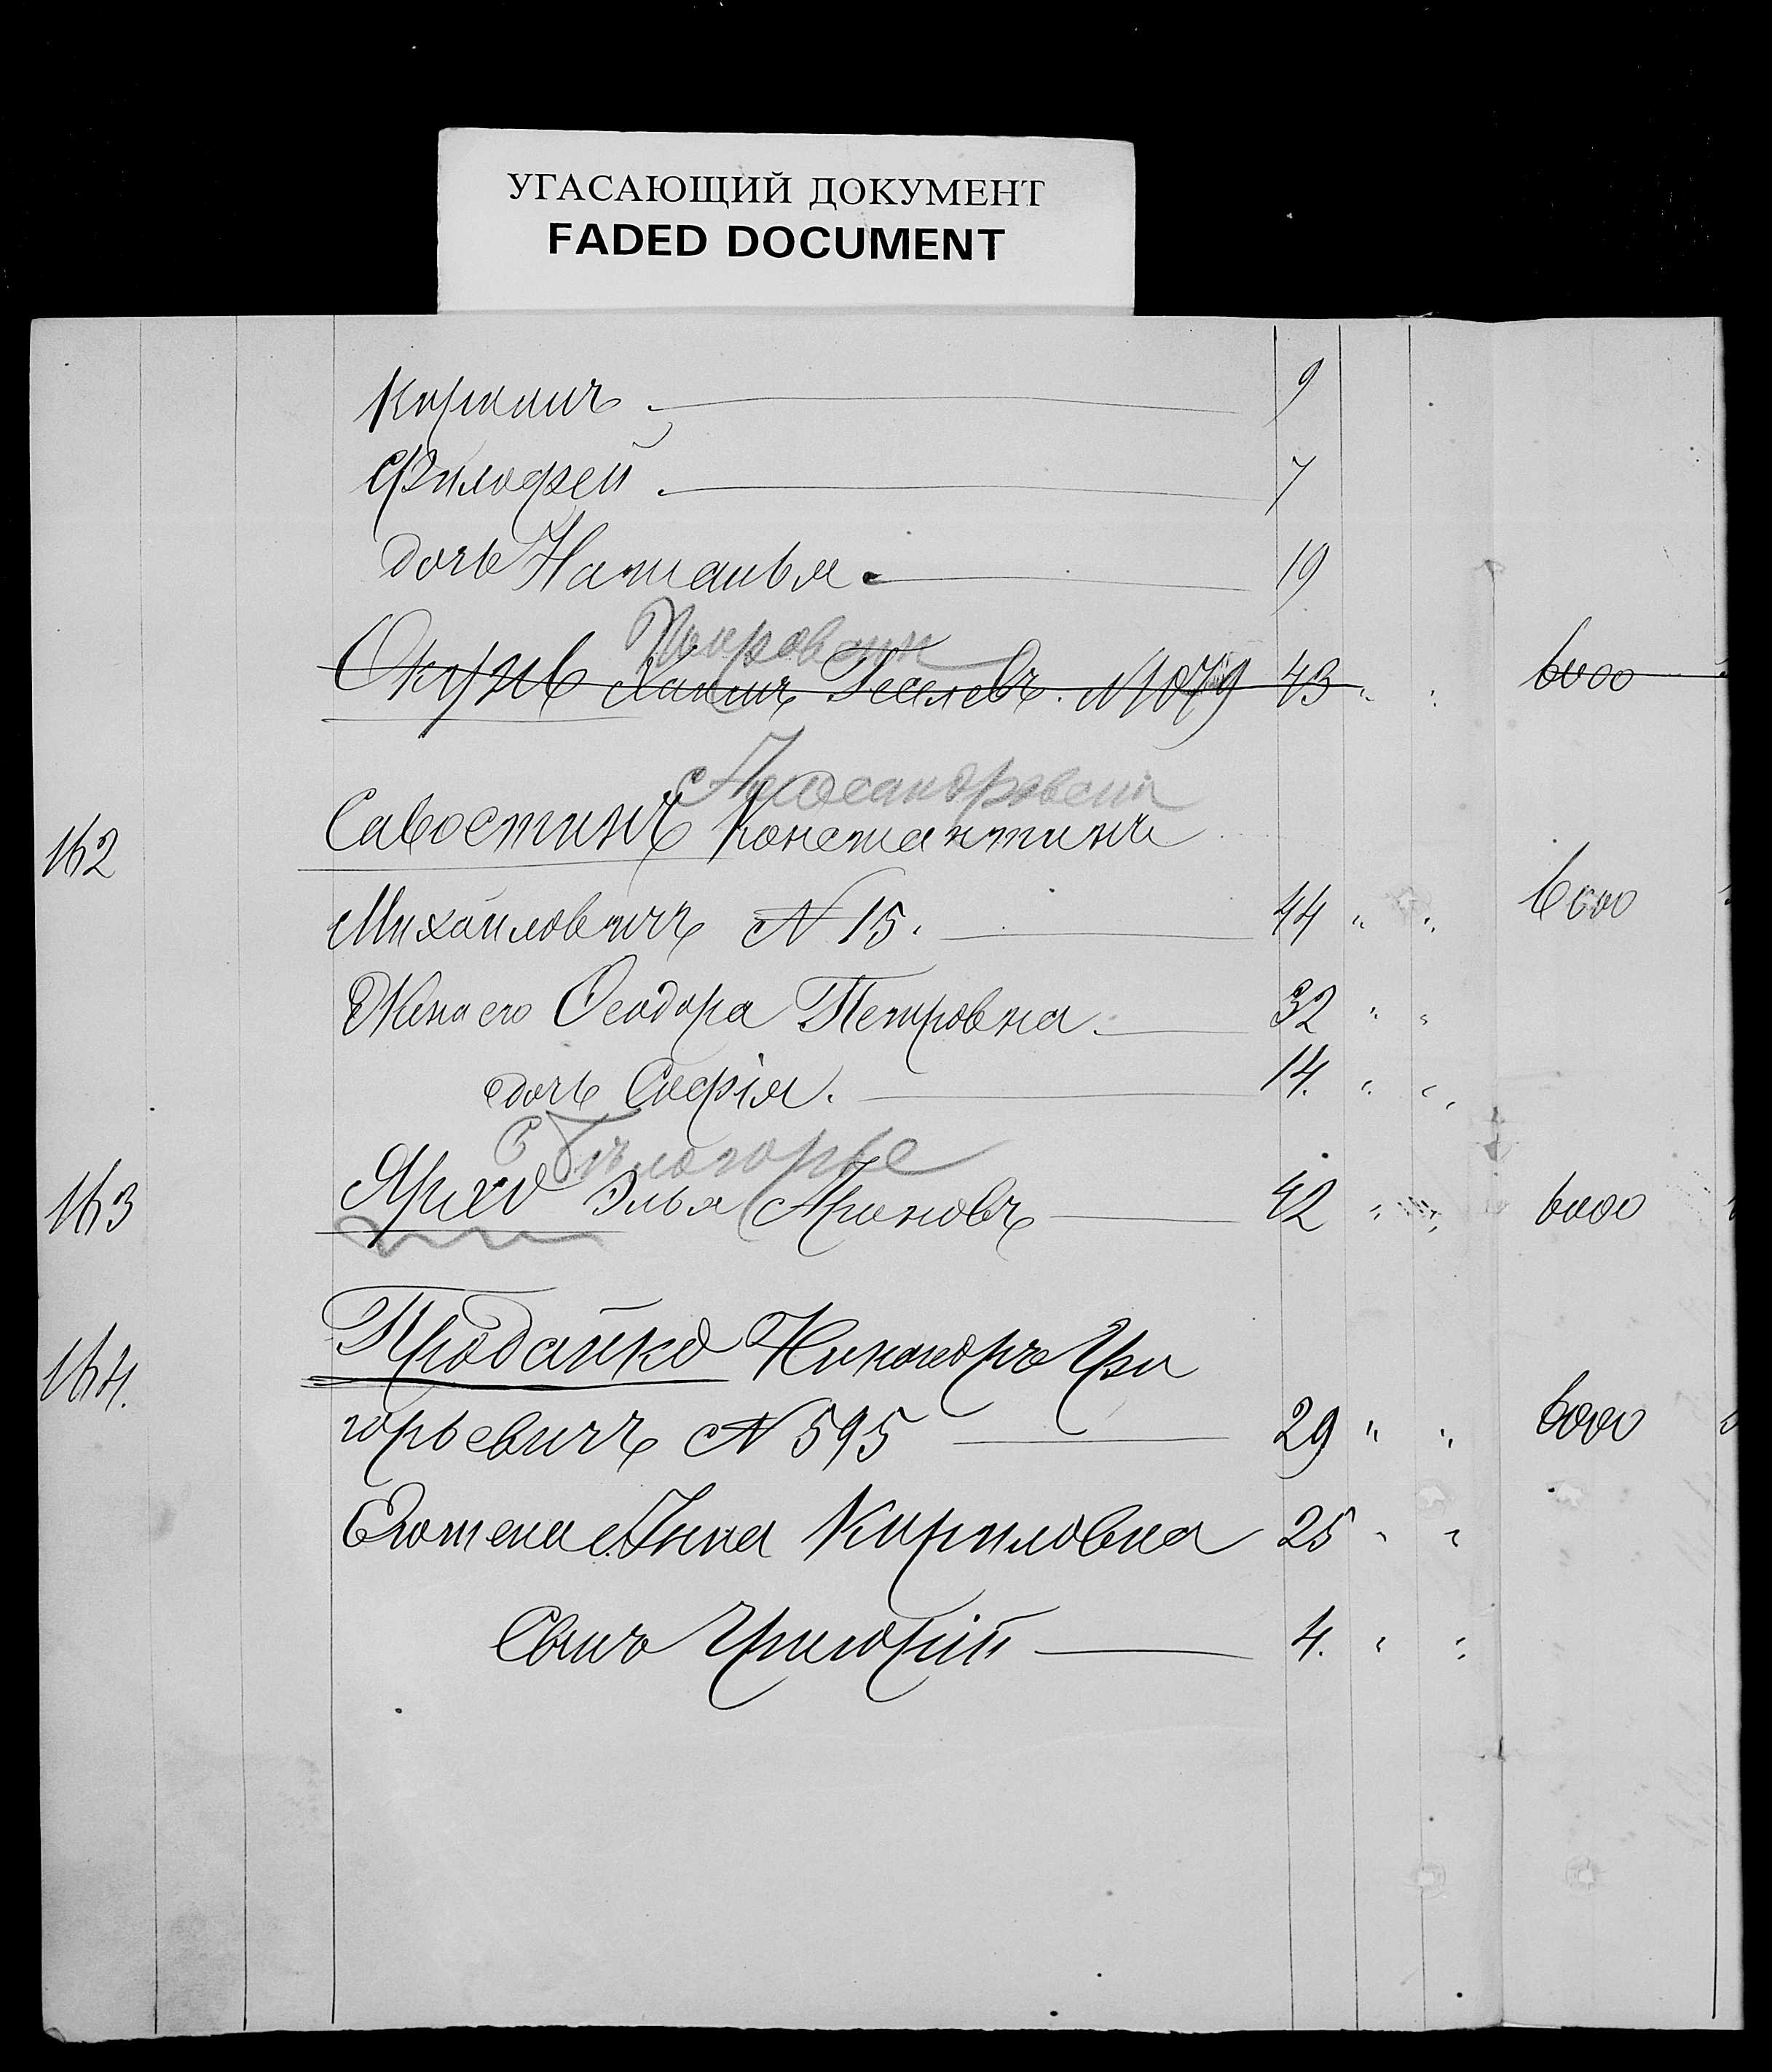 УГАСАЮЩИЙ ДОКУМЕНТ
FADED DOCUMENT
9
Филофей . 7
дочь Наталья . 19
Покровски
Хаимъ Геселевъ . N 1079 43 " " 6000
Александровскій
162 Савостинъ Константинъ
Михайловичъ N 15 . 44 " " 6000
Жена его Ѳеодора Петровна . 32 " "
дочь Софія . 14. " "
Бѣлогорье
163 Эльа Ароновъ 42 " " 6000
164. Продайко Никаноръ Гри
горьевичъ N 595 29 " " 6000
Его жена Анна Кириловна 25 " "
Сынъ Григорій 4. " "